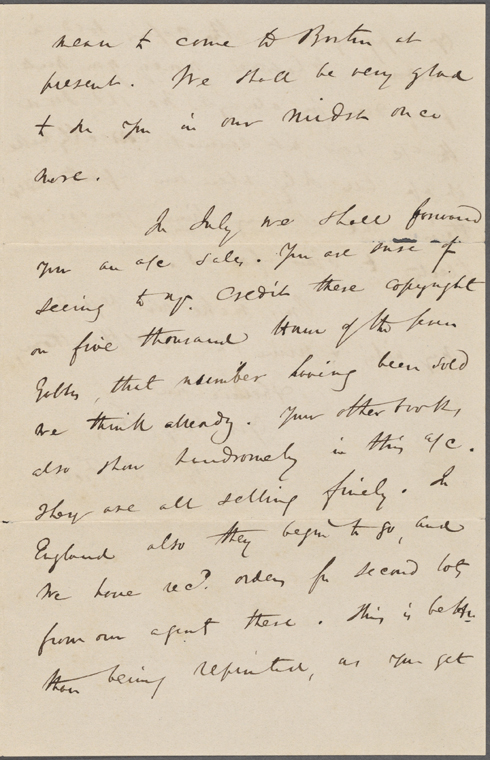 mean to come to Boston at
present. We shall be very glad
to see you in our midst once
more.
In July we shall forward
you an a/c sales. You are sure of
seeing to yr. Credit there copyright
on five thousand House of the Seven
Gables, that number having been sold
we think already. Your other books,
also show handsomely in this a/c.
They are all selling finely. In
England also they begin to go, and
We have recd. orders for second lots
from our agent there. This is better
than being reprinted, as you get